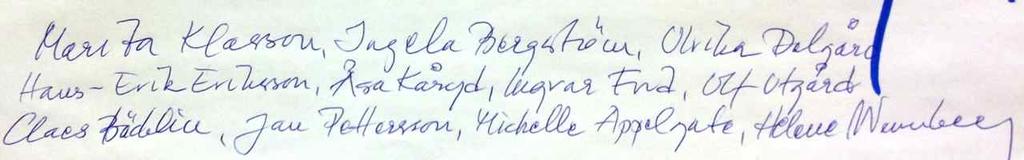 Marita Klasson, Ingela Bergström, Ulrika Delgård
Hans-Erik Eriksson, Åsa Käryd, Ingvar Frid, Ulf Utgård
Claes Bäcklin, Jan Pettersson, Michelle Appelgate, Helene Wennberg